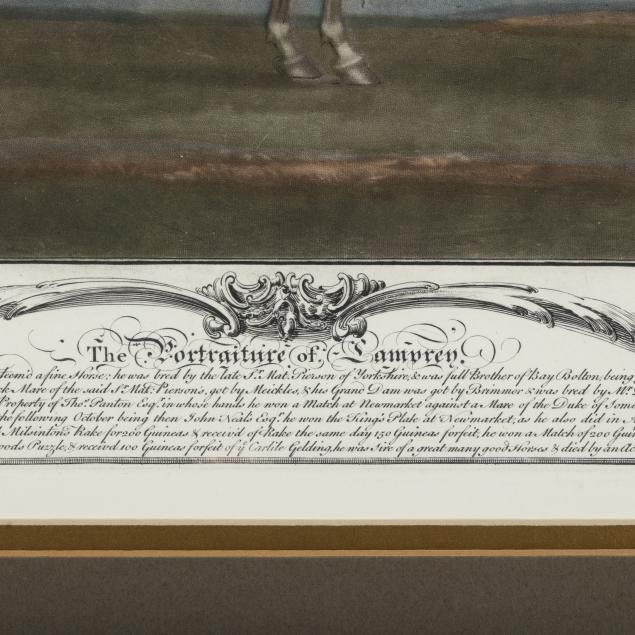 The Portraiture of Lamprey.
teem'd a fine Horse; he was bred by the late Sr. Mat. Pierson of Yorkshire, & was full Brother of Bay Bolton, being
Mare of the said Sr. Mat. Pierson's, got by Meickles, & his Grand Dam was got by Brimmer & was bred by Mr.
Property of Thos. Panton Esqr. in whose hands he won a Match at Newmarket against a Mare of the Duke of
he following October being then John Neal's Esqr. he won the King's Plate at Newmarket, as he also did in
Milsinton's Rake for 200 Guineas & receiv'd of Rake the same day 150 Guineas forfeit, he won a Match of 200
Puzzle, & receiv'd 100 Guineas forfeit of ye Carlile Gelding, he was Sire of a great many good Horses & died by an